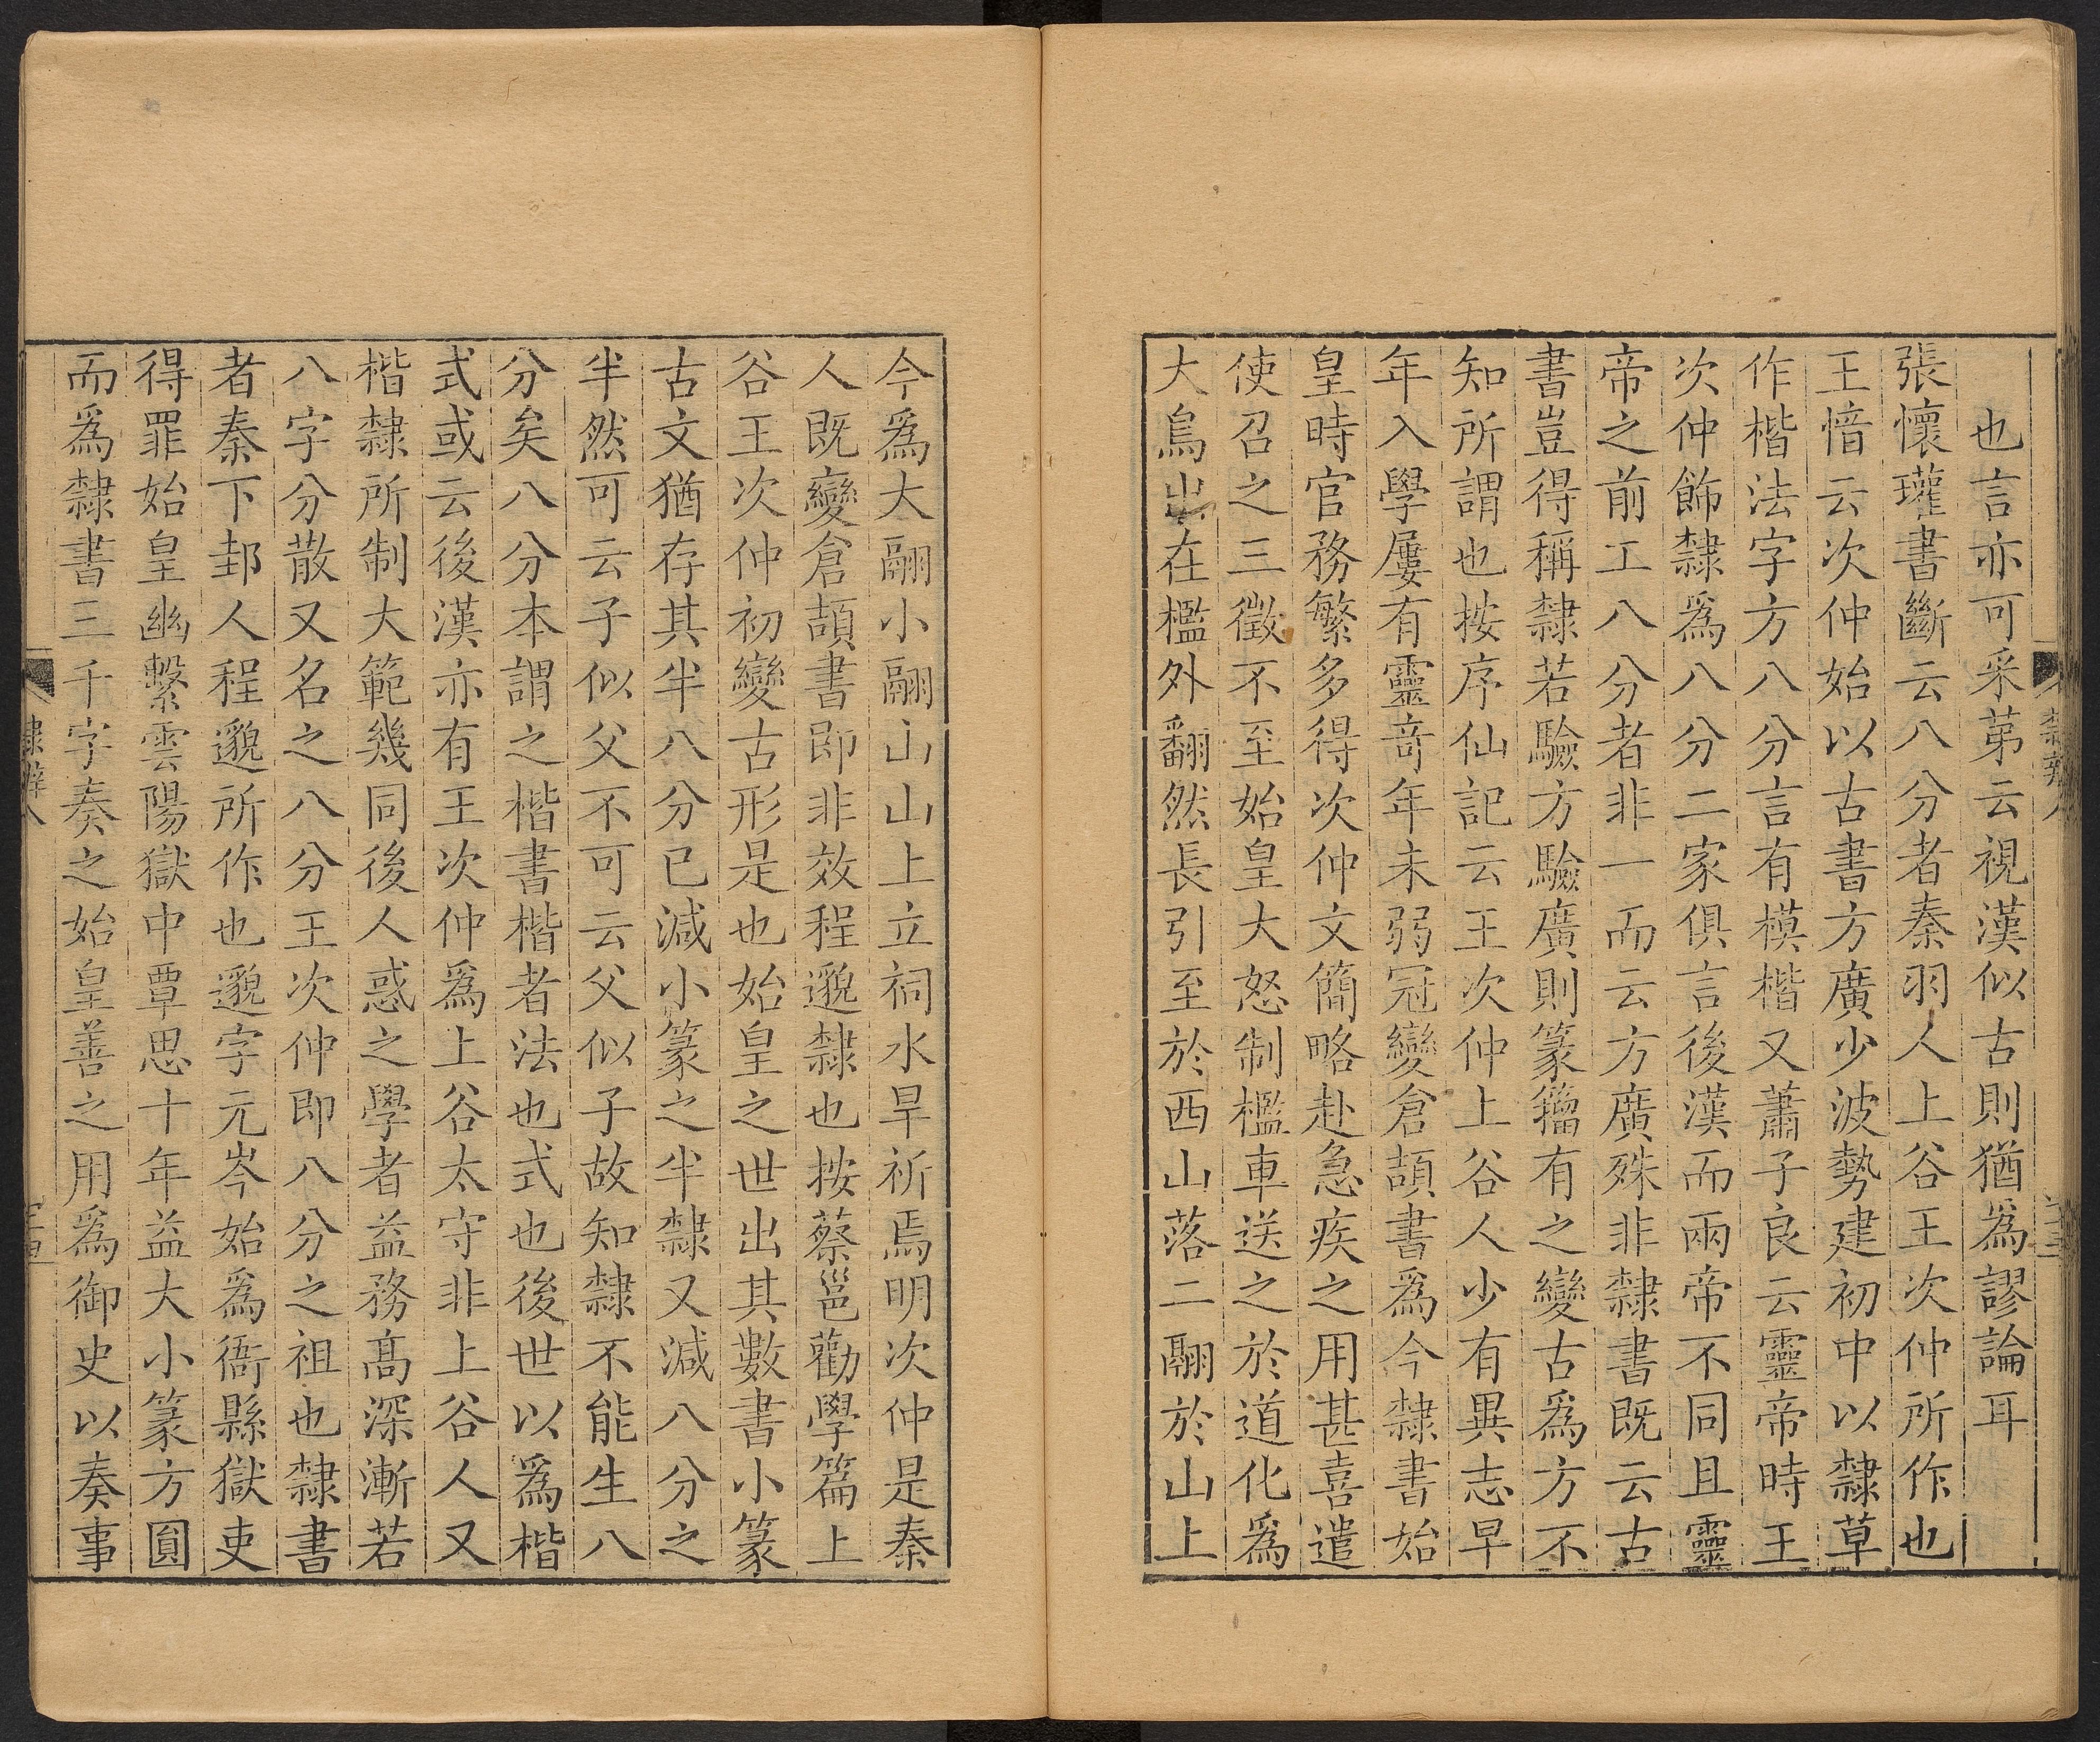 也言亦可采苐云視漢似古則猶爲謬論耳
張懷瓘書斷云八分者秦羽人上谷王次仲所作也
王愔云次仲始以古書方廣少波勢建初中以隸草
作楷法字方八分言有模楷又蕭子良云靈帝時王
次仲飾隸爲八分二家俱言後漢而兩帝不同且靈
帝之前工八分者非一而云方廣殊非隸書既云古
書豈得稱隸若驗方驗廣則篆籀有之變古爲方不
知所謂也按序仙記云王次仲上谷人少有異志早
年入學屢有靈竒年未弱冠變倉頡書爲今隸書始
皇時官務繁多得次仲文簡略赴急疾之用甚喜遣
使召之三徵不至始皇大怒制檻車送之於道化爲
大鳥出在檻外翻然長引至於西山落二翮於山上
今爲大翮小翮山山上立祠水旱祈焉明次仲是秦
人既變倉頡書即非效程邈隸也按蔡邕勸學篇上
谷王次仲初變古形是也始皇之世出其數書小篆
古文猶存其半八分已減小篆之半隸又減八分之
半然可云子似父不可云父似子故知隸不能生八
分矣八分本謂之楷書楷者法也式也後世以爲楷
式或云後漢亦有王次仲爲上谷太守非上谷人又
楷隸所制大範幾同後人惑之學者益務高深漸若
八字分散又名之八分王次仲即八分之祖也隸書
者秦下邽人程邈所作也邈字元岑始爲衙縣獄吏
得罪始皇幽繫雲陽獄中覃思十年益大小篆方圓
而爲隸書三千字奏之始皇善之用爲御史以奏事